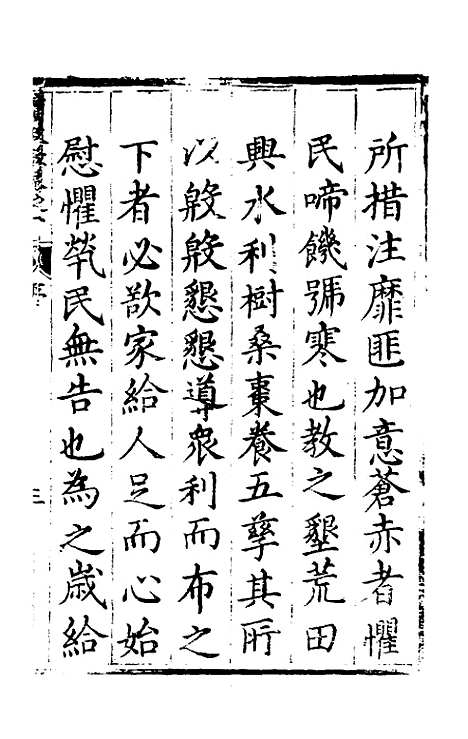 所措注靡匪加意蒼赤者懼
民啼饑號寒也教之墾荒田
興水利樹桑棗養五孳其所
以殷殷懇懇導衆利而布之
下者必欲家給人足而心始
慰懼煢民無告也為之歲給
三